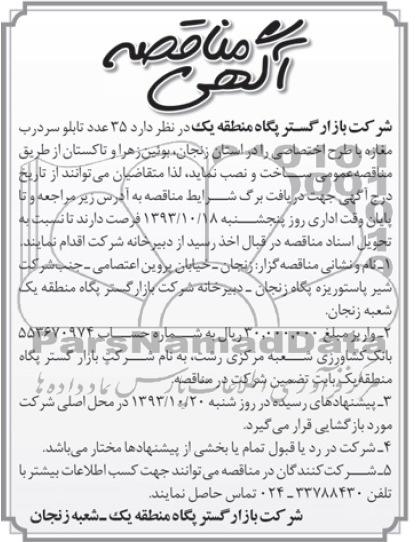 آگهی مناقصه
شرکت بازار گستر پگاه منطقه یک در نظر دارد ۳۵ عدد تابلو سردرب
مغازه با طرح اختصاصی را در استان زنجان، بوئین زهرا و تاکستان از طریق
مناقصه عمومی ساخت و نصب نماید، لذا متقاضیان می‌توانند از تاریخ
درج آگهی جهت دریافت برگ شرایط مناقصه به آدرس زیر مراجعه و تا
پایان وقت اداری روز پنجشنبه ۱۳۹۳/۱۰/۱۸ فرصت دارند تا نسبت به
تحویل اسناد مناقصه در قبال اخذ رسید از دبیرخانه شرکت اقدام نمایند.
۱ـ نام و نشانی مناقصه گزار: زنجان ـ خیابان پروین اعتصامی ـ جنب شرکت
شیر پاستوریزه پگاه زنجان ـ دبیرخانه شرکت بازار گستر پگاه منطقه یک
شعبه زنجان.
۲ـ واریز مبلغ ۳۰,۰۰۰,۰۰۰ ریال به شماره حساب ۵۵۳۶۷۰۹۷۴
بانک کشاورزی شعبه مرکزی رشت، به نام شرکت بازار گستر پگاه
منطقه یک بابت تضمین شرکت در مناقصه.
۳ـ پیشنهادهای رسیده در روز شنبه ۱۳۹۳/۱۰/۲۰ در محل اصلی شرکت
مورد بازگشایی قرار می‌گیرد.
۴ـ شرکت در رد یا قبول تمام یا بخشی از پیشنهادها مختار می‌باشد.
۵ـ شرکت کنندگان در مناقصه می‌توانند جهت کسب اطلاعات بیشتر با
تلفن ۳۳۷۸۸۴۳۰ ـ ۰۲۴ تماس حاصل نمایند.
شرکت بازار گستر پگاه منطقه یک ـ شعبه زنجان
ParsNamadData